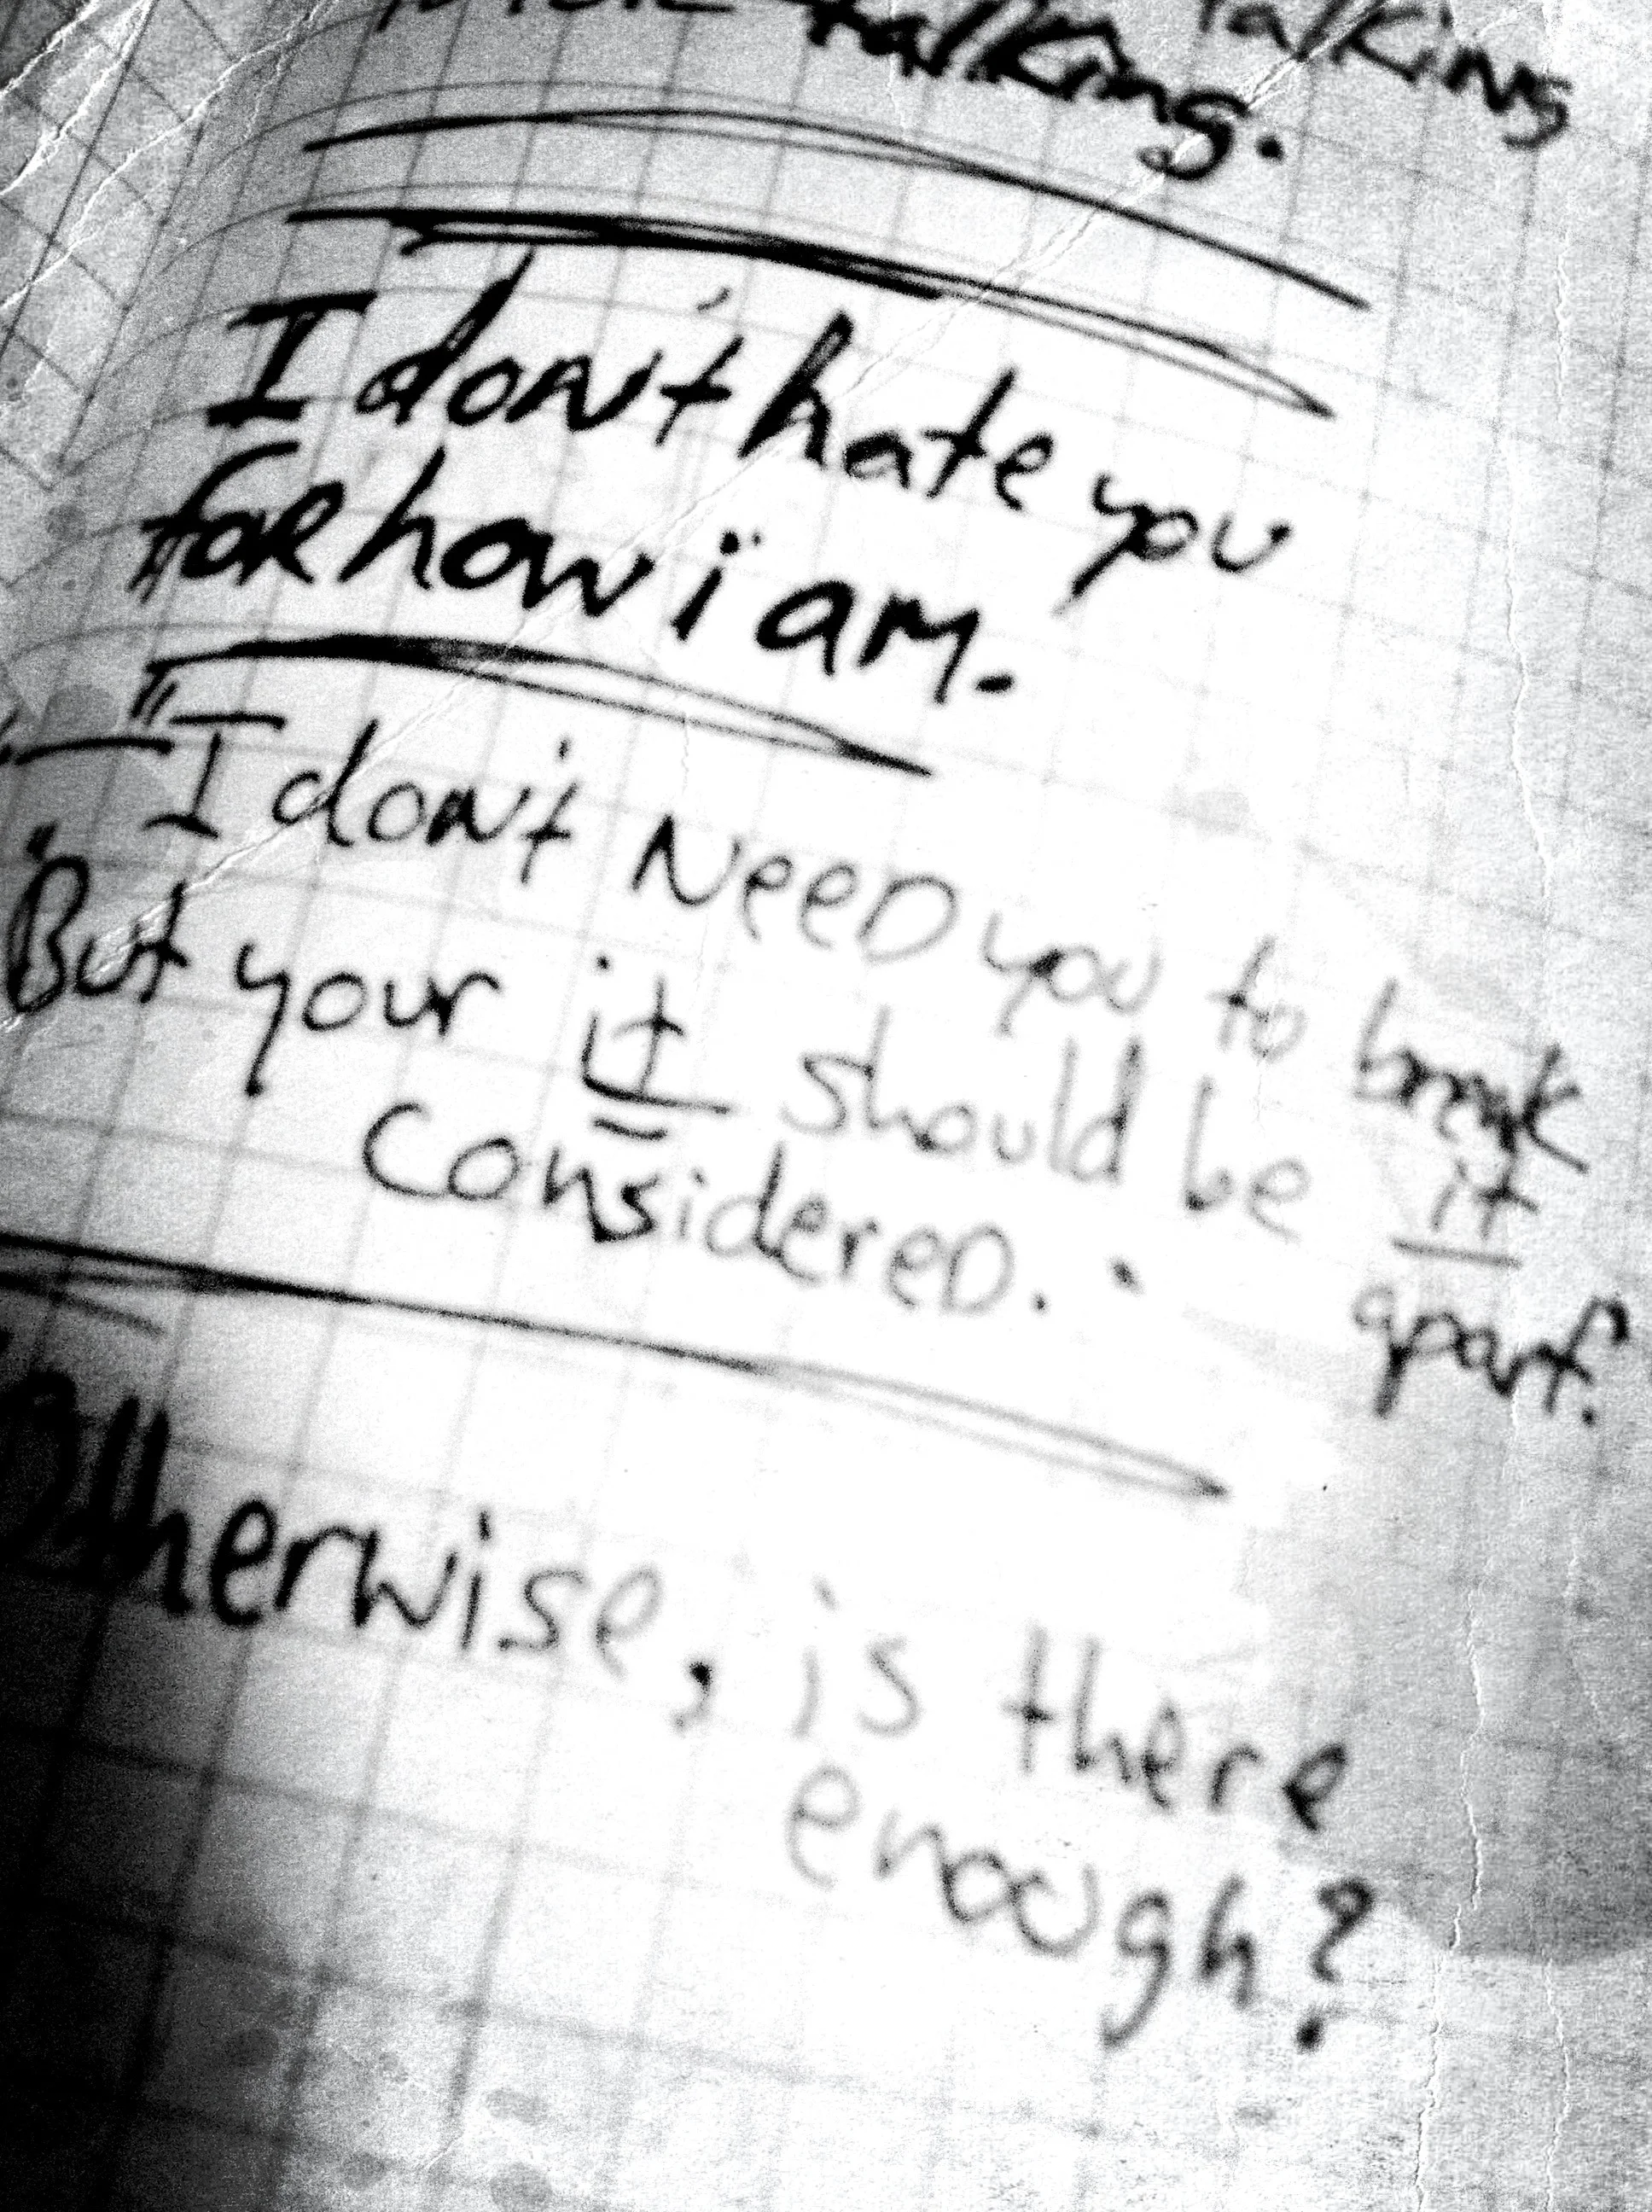 talking
talking.
I don't hate you
for how i am.
"I don't NeeD you to break
it
apart."
"But your it should be
considereD."
Otherwise, is there
enough?